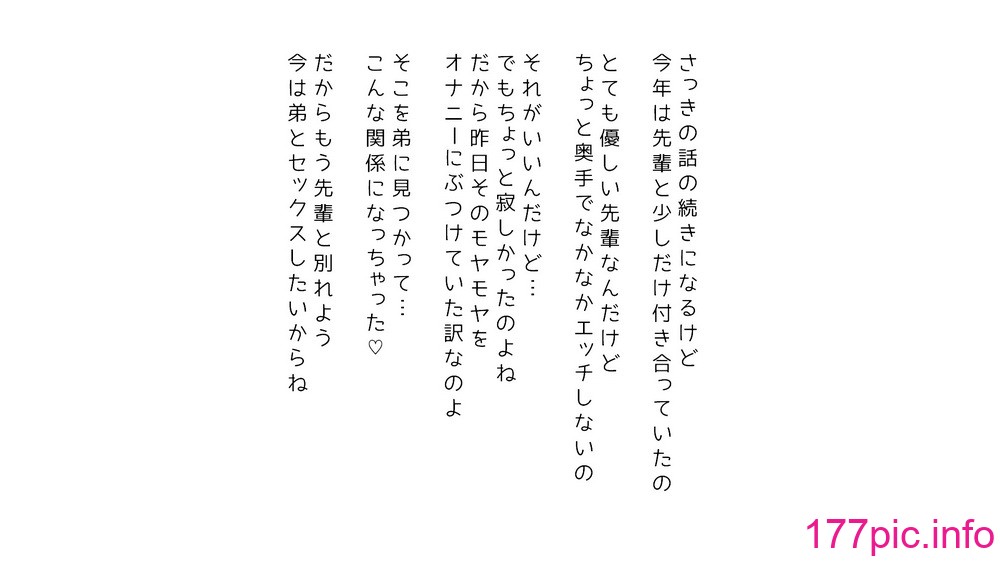 さっきの話の続きになるけど
今年は先輩と少しだけ付き合っていたの
とても優しい先輩なんだけど
ちょっと奥手でなかなかエッチしないの
それがいいんだけど…
でもちょっと寂しかったのよね
だから昨日そのモヤモヤを
オナニーにぶつけていた訳なのよ
そこを弟に見つかって…
こんな関係になっちゃった♡
だからもう先輩と別れよう
今は弟とセックスしたいからね
177pic.info